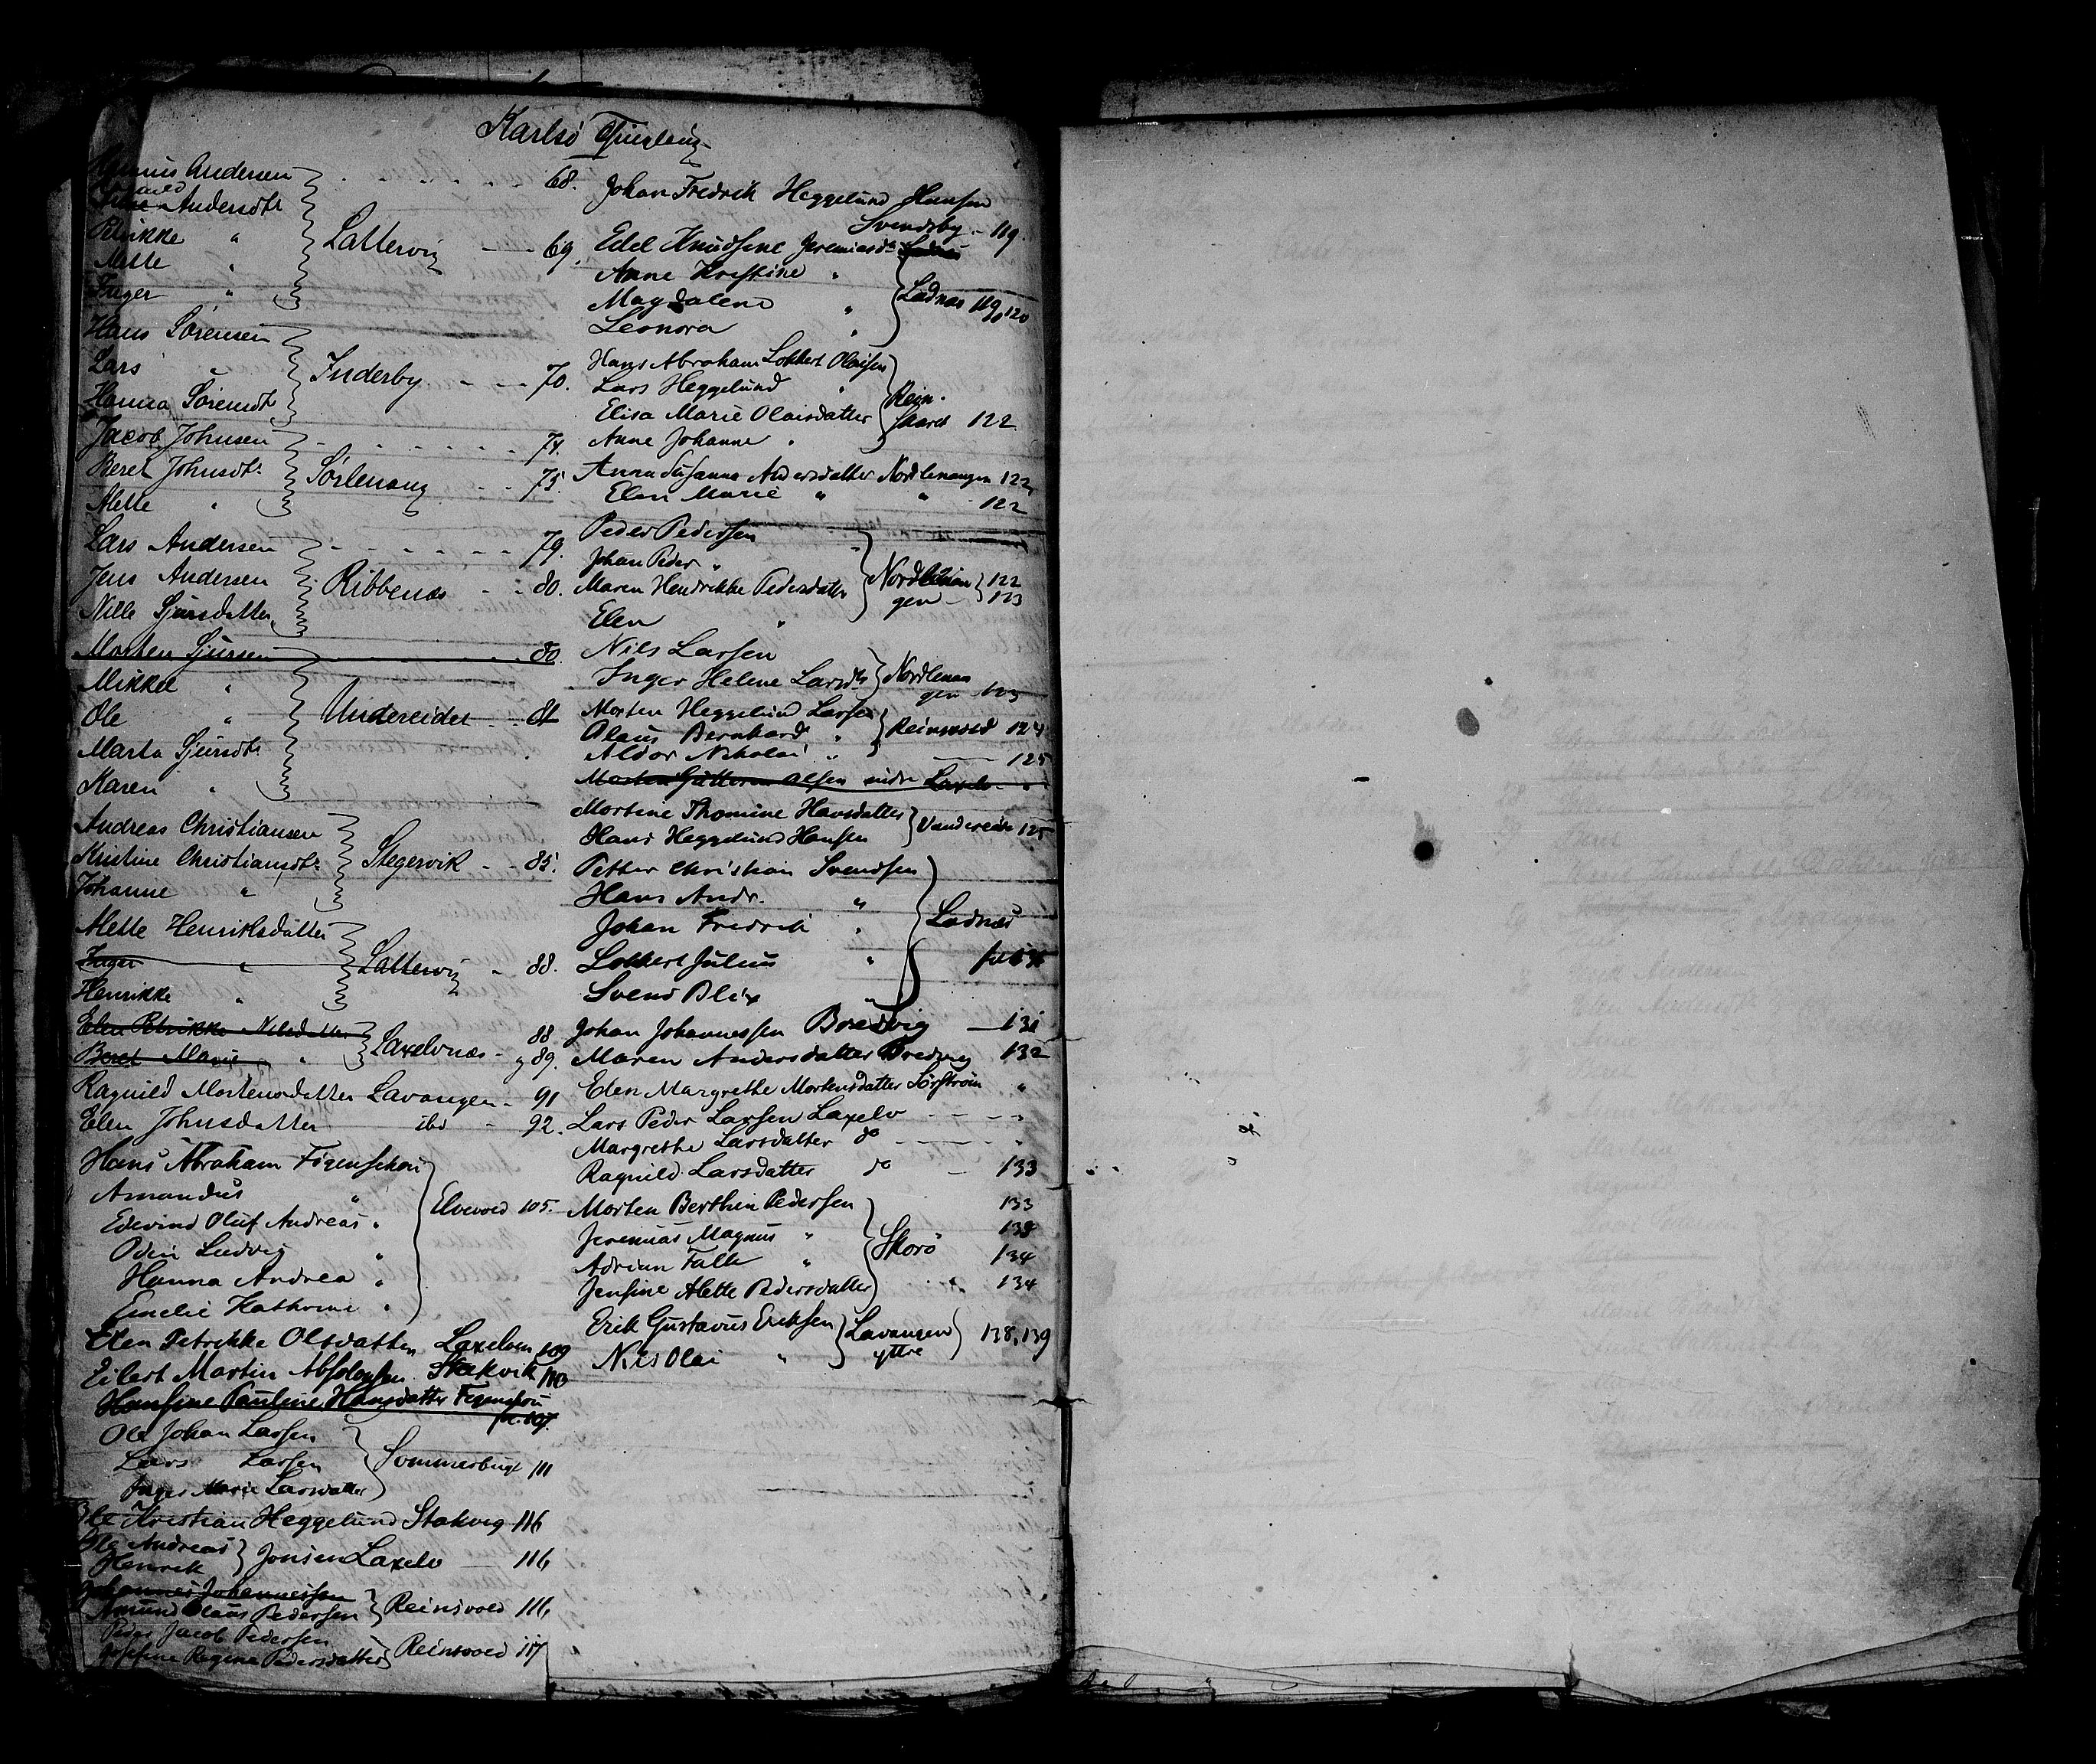 Karlsö Thinglaug
Andersen 68.
Andersdtr
Petrikke " Lattervig 69.
Mette "
Inger "
Hans Sörensen
Lars " Inderby 70.
Hanna Sörensdtr
Jacob Johnsen 74.
Beret Johnsdtr Sörlenang 75.
Mette "
Lars Andersen 79.
Jens Andersen Ribbenæs 80.
Nille Sjursdatter
Morten Sjursen 80.
Mikkel "
Ole " Undereidet 81
Marta Sjursdtr
Karen "
Andreas Christiansen
Kristine Christiansdtr Stegervik 85.
Johanne "
Mette Henriksdatter
Inger " Lattervig 88.
Henrikke "
Elen Petrikke Nilsdatter 88
Beret Marie " Laxelvnæs og 89.
Ragnild Mortensdatter Lavangen 91
Elen Johnsdatter ibd 92.
Hans Abraham Figenschou
Amandus "
Edevind Oluf Andreas " Elvevold 105.
Odin Ludvig "
Hanna Andrea "
Emelie Kathrine "
Elen Petrikke Olsdatter Laxelven 109
Eilert Martin Absolonsen Stakvik 110
Hansine Pauline Hansdatter Figenschou
fol. 107.
Ole Johan Larsen
Lars Larsen Sommerbugt 111
Inger Marie Larsdatter
Ole Kristian Heggelund Stakvig 116
Ole Andreas
Henrik Jensen Laxelv 116
Johannes Johannessen
Amund Claus Pedersen Reinsvold 116
Peder Jacob Pedersen
Josefine Regine Pedersdatter Reinsvold 117
Johan Fredrik Heggelund Hansen
Svendsby 119.
Edel Knudsine Jeremiasdr Ladnæs
Anne Kristine "
Magdalene " Ladnæs 119, 120
Leonora "
Hans Abraham Lokkert Olaisen
Lars Heggelund "
Elisa Marie Olaisdatter Rein-
skaret 122
Anne Johanne "
Anna Susanna Andersdatter Nordlenangen 122
Elen Marie " " 122
Peder Pedersen
Johan Peder "
Maren Hendrikke Pedersdatter Nordlenan
gen 122
123
Elen "
Nils Larsen
Inger Helene Larsdtr Nordlenan
gen 123
Morten Heggelund Larsen
Olaus Bernhard " Reinsvold 124
Aldor Nikolai " 125
Morten Guttorm Olsen indre Laxelv "
Martine Thomine Hansdatter
Hans Heggelund Hansen Undereide 125
Petter Christian Svendsen
Hans Andr. "
Johan Fredrik " Ladnæs
Lokkert Julius "
Svend Blix "
Johan Johannessen Bredvig 131
Maren Andersdatter Bredvig 132
Elen Margrethe Mortensdatter Sörström "
Lars Peder Larsen Laxelv "
Margrethe Larsdatter do "
Ragnild Larsdatter do 133
Morten Berthin Pedersen 133
Jeremias Magnus " 133
Adrian Falk " Skorö 134
Jensine Alette Pedersdatter 134
Erik Gustavus Eriksen
Nils Olai " Lavangen
yttre 138, 139